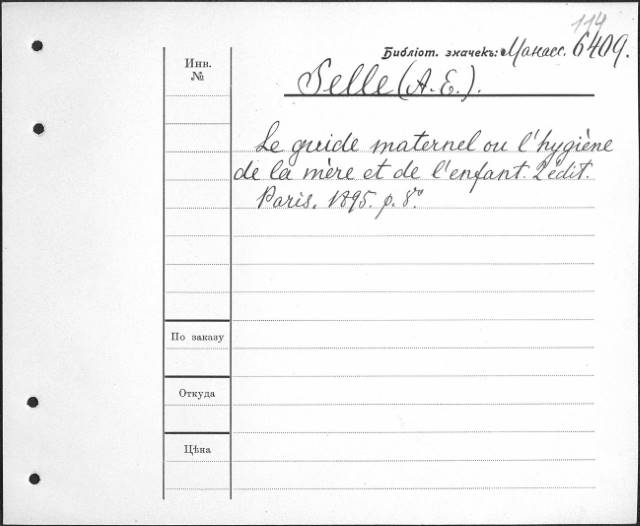 114
Библіот. значекъ: Манасс. 6409.
Инв.
№
Selle (A. E.).
Le guide maternel ou l'hygiène
de la mère et de l'enfant. 2 édit.
Paris. 1895. p. 8º
По заказу
Откуда
Цѣна